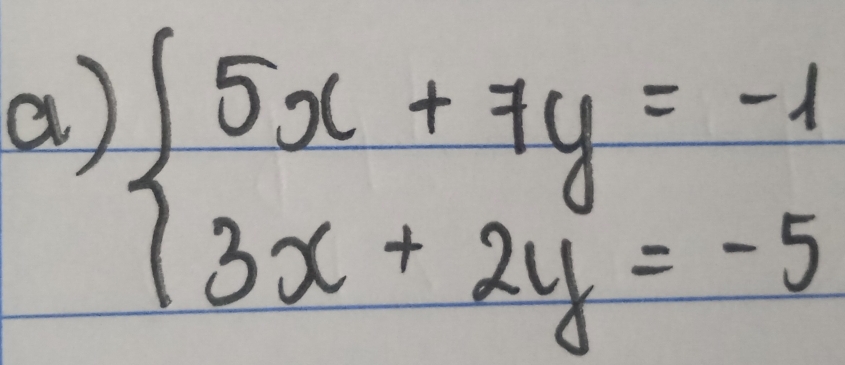 a) { 5x + 7y = -1
3x + 2y = -5